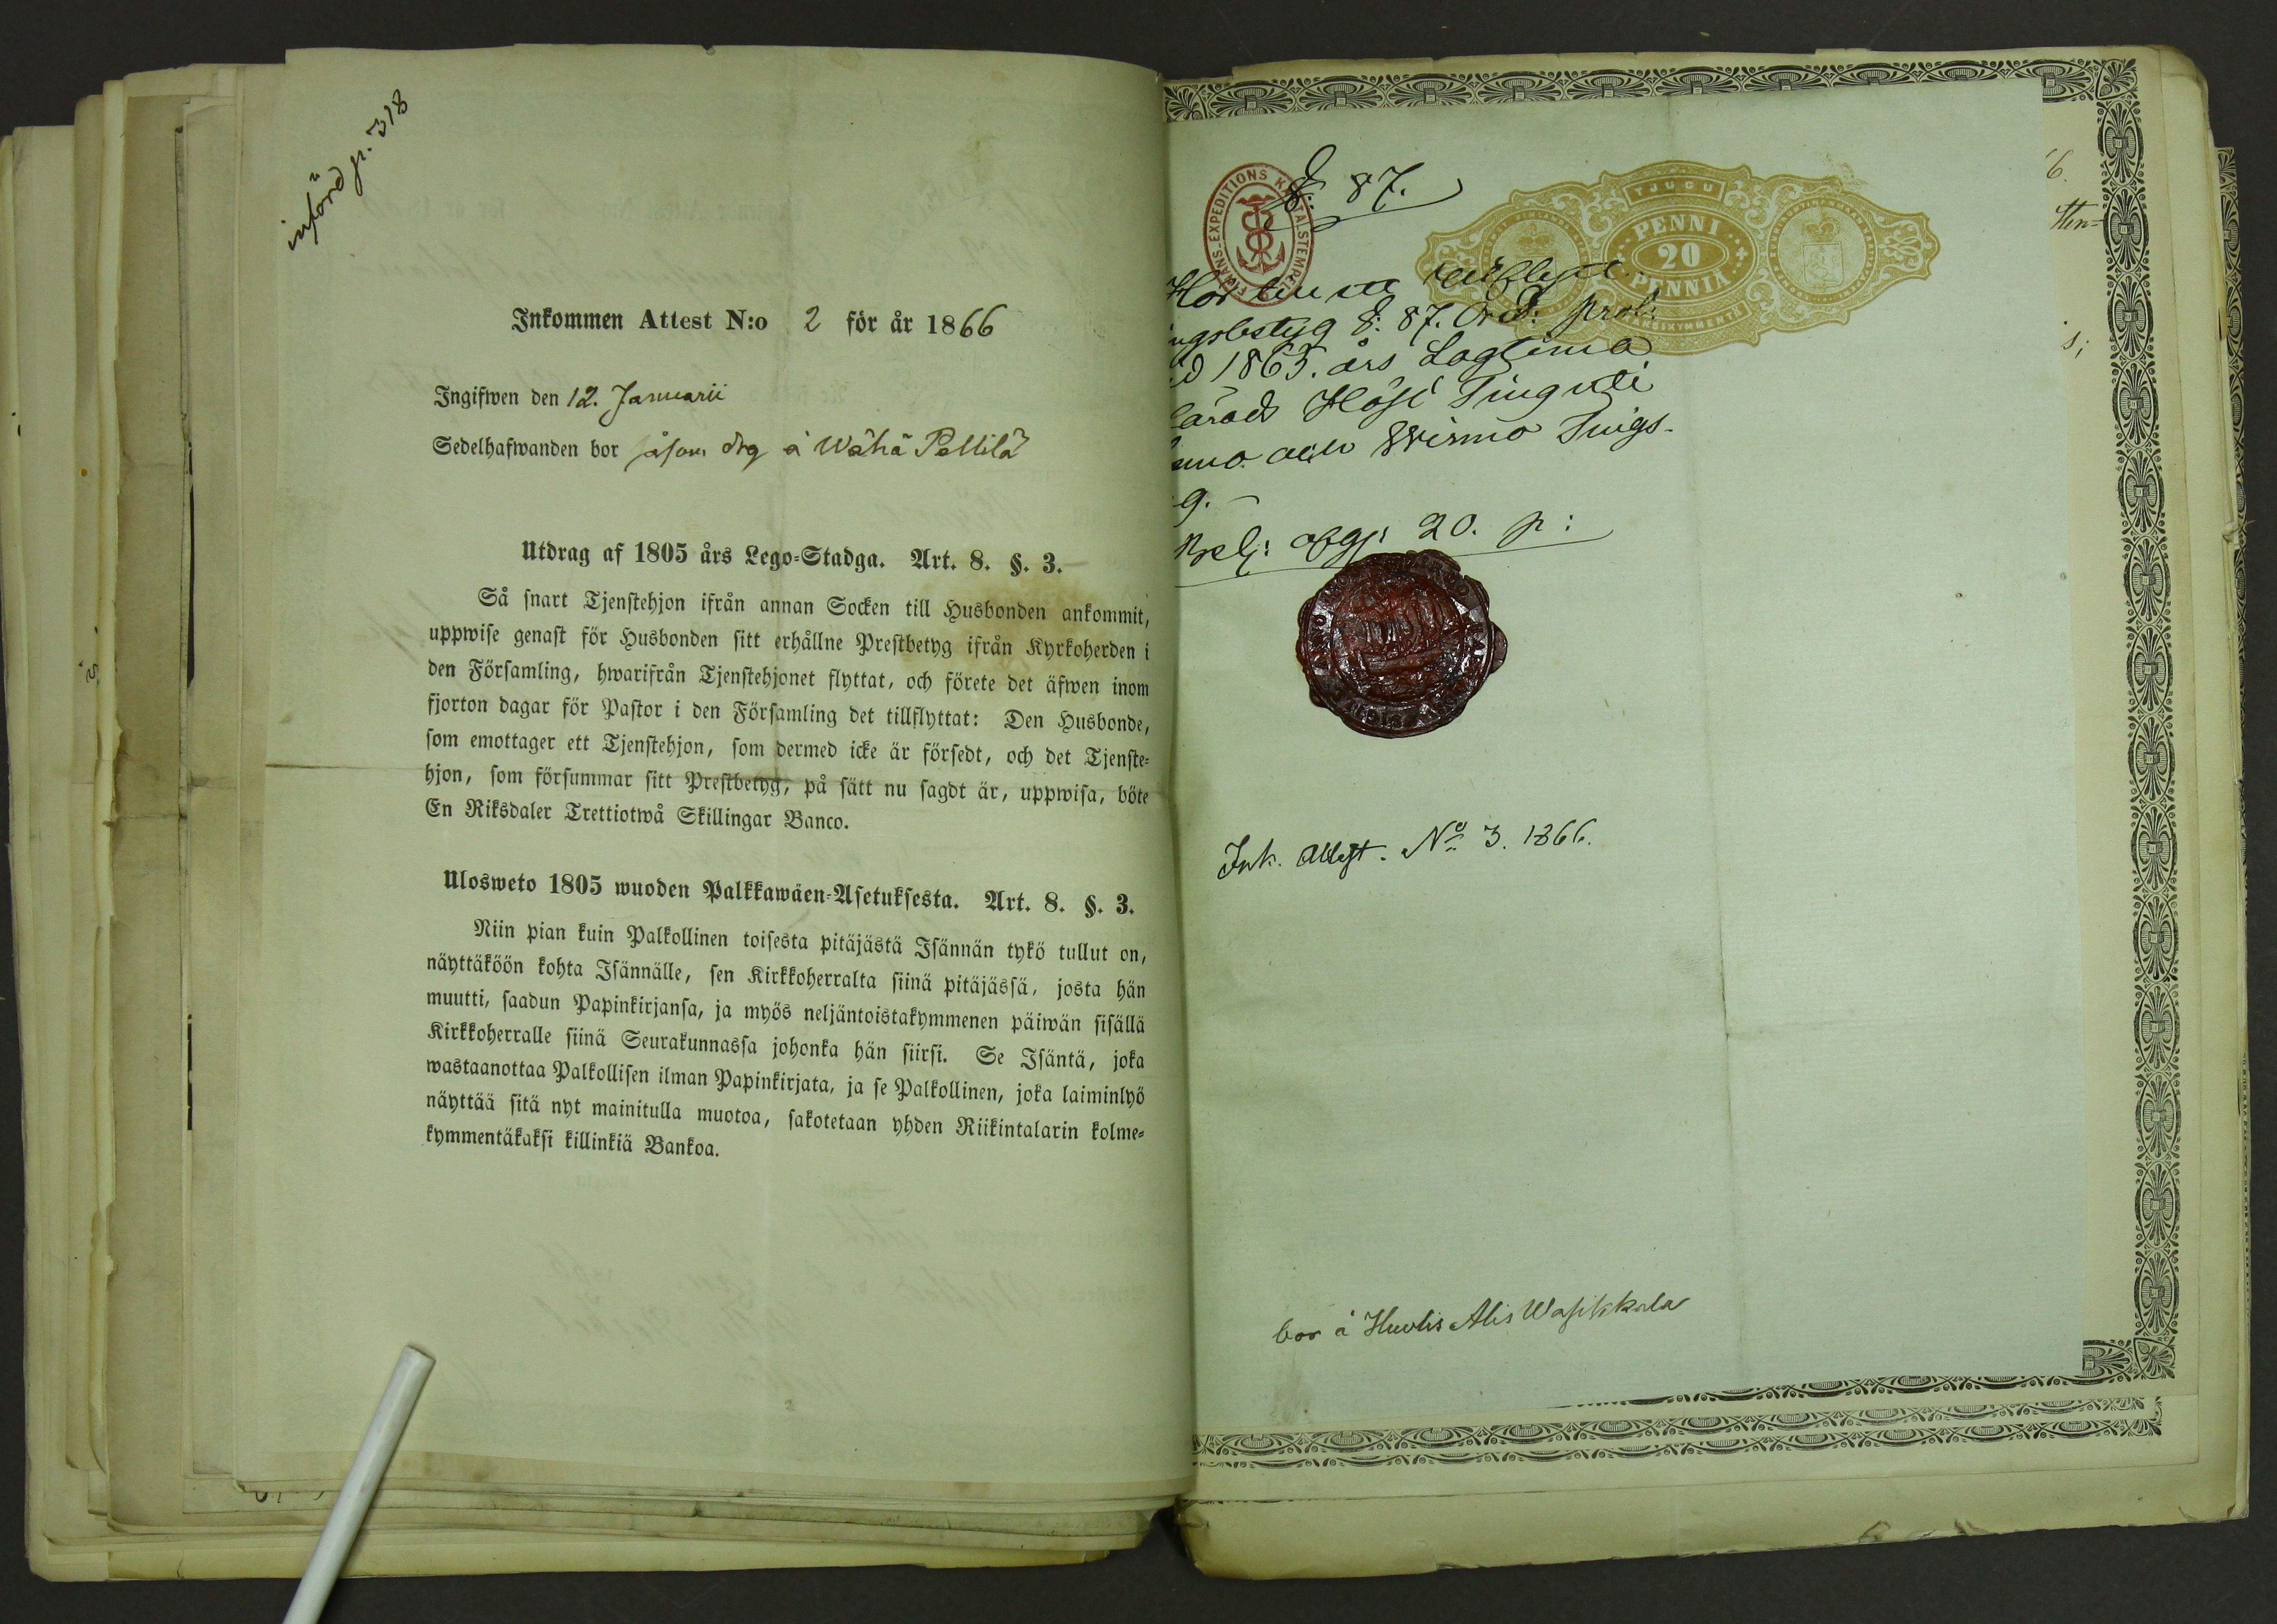 införd p. 318
Inkommen Attest N:o 2 för år 1866
Ingifwen den 12. Januarii
Sedelhafwanden bor såsom drg å Wähä Pellilä
Utdrag af 1805 års Lego-Stadga. Art. 8. §. 3.
Så snart Tjenstehjon ifrån annan Socken till Husbonden ankommit,
uppwise genast för Husbonden sitt erhållne Prestbetyg ifrån Kyrkoherden i
den Församling, hwarifrån Tjenstehjonet flyttat, och förete det äfwen inom
fjorton dagar för Pastor i den Församling det tillflyttat: Den Husbonde,
som emottager ett Tjenstehjon, som dermed icke är försedt, och det Tjenste-
hjon, som försummar sitt Prestbetyg, på sätt nu sagdt är, uppwisa, böte
En Riksdaler Trettiotwå Skillingar Banco.
Ulosweto 1805 wuoden Palkkawäen-Asetuksesta. Art. 8. §. 3.
Niin pian kuin Palkollinen toisesta pitäjästä Isännän tykö tullut on,
näyttäköön kohta Isännälle, sen Kirkkoherralta siinä pitäjässä, josta hän
muutti, saadun Papinkirjansa, ja myös neljäntoistakymmenen päiwän sisällä
Kirkkoherralle siinä Seurakunnassa johonka hän siirsi. Se Isäntä, joka
wastaanottaa Palkollisen ilman Papinkirjata, ja se Palkollinen, joka laiminlyö
näyttää sitä nyt mainitulla muotoa, sakotetaan yhden Riikintalarin kolme-
kymmentäkaksi killinkiä Bankoa.
§. 87.
EXPEDITIONS KARTALSTEMPEL FINANS-
TJUGU
PENNI
20
PENNIÄ
KAKSIKYMMENTÄ
ngsbetyg §. 87. Ord: prot:
id 1865. års Lagtima
Härads Höst Ting uti
mo och Wirmo Tings-
g.
afg: 20. p:
Ink. Attest. No 3. 1866.
bor å Huvlis Alis Wasikkala
6.
tten=
s;